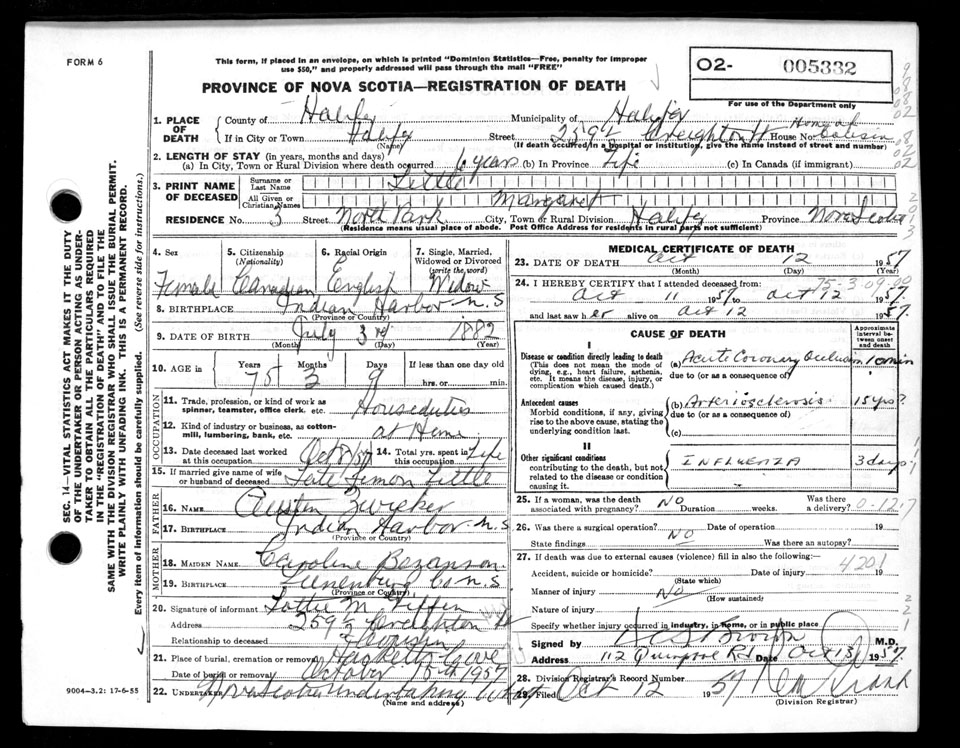 FORM 6
This form, if placed in an envelope, on which is printed "Dominion Statistics—Free, penalty for improper
use $50," and properly addressed will pass through the mail "FREE"
PROVINCE OF NOVA SCOTIA—REGISTRATION OF DEATH
O2- 005332
For use of the Department only
1. PLACE OF DEATH
County of Halifax Municipality of Halifax
If in City or Town Halifax Street 259½ Creighton St House No. Home of Cousin
(Name) (If death occurred in a hospital or institution, give the name instead of street and number)
2. LENGTH OF STAY (in years, months and days)
(a) In City, Town or Rural Division where death occurred 6 years (b) In Province Life (c) In Canada (if immigrant)
3. PRINT NAME OF DECEASED
Surname or Last Name Little
All Given or Christian Names Margaret
RESIDENCE No. 3 Street North Park City, Town or Rural Division Halifax Province Nova Scotia
(Residence means usual place of abode. Post Office Address for residents in rural parts not sufficient)
4. Sex Female
5. Citizenship (Nationality) Canadian
6. Racial Origin English
7. Single, Married, Widowed or Divorced (write the word) Widow
8. BIRTHPLACE Indian Harbor N.S
(Province or Country)
9. DATE OF BIRTH July 3rd 1882
(Month) (Day) (Year)
10. AGE in Years Months Days If less than one day old
75 3 9 hrs. or min.
OCCUPATION
11. Trade, profession, or kind of work as spinner, teamster, office clerk. etc. Houseduties
12. Kind of industry or business, as cotton-mill, lumbering, bank, etc. at Home
13. Date deceased last worked at this occupation Oct 8/57
14. Total yrs. spent in this occupation Life
15. If married give name of wife or husband of deceased Late Simon Little
FATHER
16. NAME Austen Zwicker
17. BIRTHPLACE Indian Harbor N.S
(Province or Country)
MOTHER
18. MAIDEN NAME Caroline Bezanson
19. BIRTHPLACE Lunenburg Co N.S
(Province or Country)
20. Signature of informant Lottie M.
Address 259½ Creighton St
Relationship to deceased Cousin
21. Place of burial, cremation or removal Hacketts Cove
Date of burial or removal October 15th 1957
22. UNDERTAKER Nova Scotia Undertaking
(Name and address)
MEDICAL CERTIFICATE OF DEATH
23. DATE OF DEATH Oct 12 1957
(Month) (Day) (Year)
75-3-09-20
24. I HEREBY CERTIFY that I attended deceased from:
Oct 11 1957 Oct 12 1957.
and last saw her alive on Oct 12 1957.
CAUSE OF DEATH
Approximate interval between onset and death
I
Disease or condition directly leading to death
(This does not mean the mode of dying, e.g., heart failure, asthenia, etc. It means the disease, injury, or complication which caused death.)
(a) Acute Coronary Occlusion 10 min
due to (or as a consequence of)
Antecedent causes
Morbid conditions, if any, giving rise to the above cause, stating the underlying condition last.
(b) Arteriosclerosis 15 yrs?
due to (or as a consequence of)
(c)
II
Other significant conditions
contributing to the death, but not related to the disease or condition causing it.
INFLUENZA 3 days
25. If a woman, was the death associated with pregnancy? NO Duration weeks. Was there a delivery? 0-12-7
26. Was there a surgical operation? NO Date of operation 19
State findings Was there an autopsy?
27. If death was due to external causes (violence) fill in also the following:—
4201
Accident, suicide or homicide? Date of injury 19
(State which)
Manner of injury NO
(How sustained)
Nature of injury
Specify whether injury occurred in industry, in home, or in public place
Signed by Brown M.D.
Address 112 Quinpool Rd Date Oct 13 1957.
28. Division Registrar's Record Number
29. Filed Oct 12 1957
(Division Registrar)
SEC. 14—VITAL STATISTICS ACT MAKES IT THE DUTY
OF THE UNDERTAKER OR PERSON ACTING AS UNDER-
TAKER TO OBTAIN ALL THE PARTICULARS REQUIRED
IN THE "REGISTRATION OF DEATH" AND TO FILE THE
SAME WITH THE DIVISION REGISTRAR WHO SHALL ISSUE THE BURIAL PERMIT.
WRITE PLAINLY WITH UNFADING INK. THIS IS A PERMANENT RECORD.
Every item of information should be carefully supplied. (See reverse side for instructions.)
9004-3.2: 17-6-55